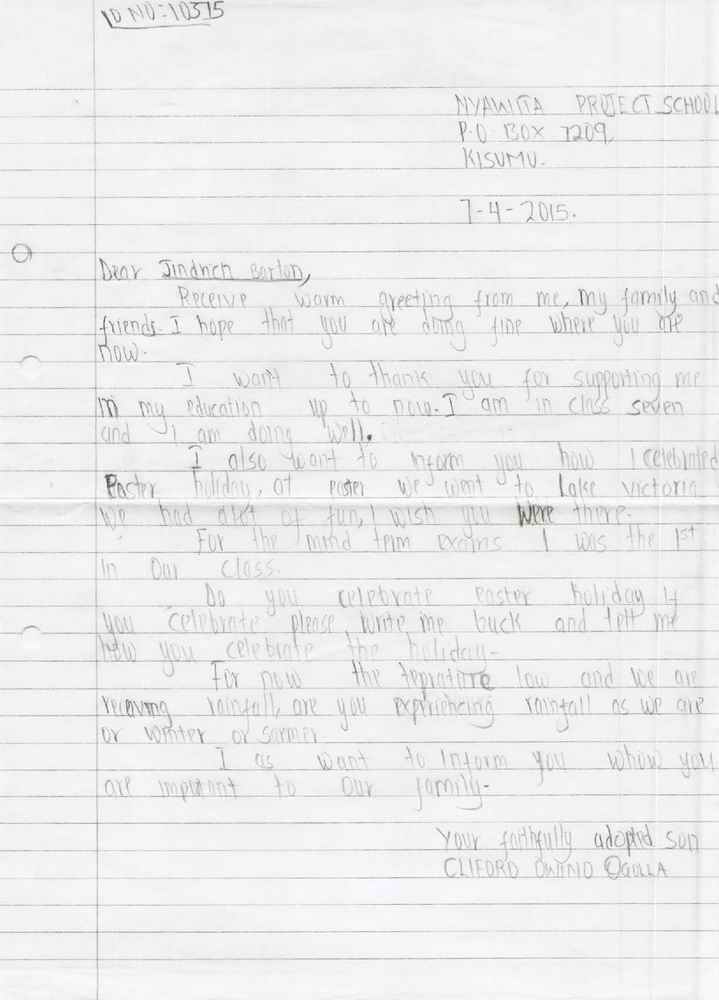 ID NO:10375
NYAWITA PROJECT SCHOOL
P.O BOX 7209,
KISUMU.
7-4-2015.
Dear Jindrich Barton,
Receive warm greeting from me, my family and
friends. I hope that you are doing fine where you are
now.
I want to thank you for supporting me
in my education up to now. I am in class seven
and I am doing well.
I also want to inform you how I celebrated
Easter holiday, at easter we went to Lake victoria
We had alot of fun, I wish you were there.
For the mind term exams I was the 1st
in our class.
Do you celebrate easter holiday if
you celebrate please write me back and tell me
how you celebrate the holiday.
For now the teprature low and we are
receiving rainfall, are you expriencing rainfall as we are
or winter or summer.
I as want to Inform you whow you
are impotant to our family.
Your faithfully adopted son
CLIFORD OWINO OGOLLA